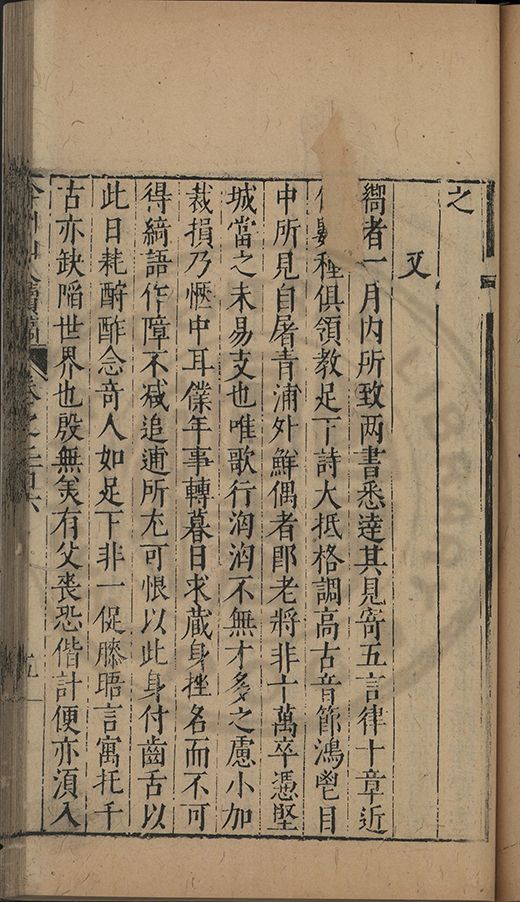 之
又
嚮者一月內所致两書悉達其見寄五言律十章近
數種俱領教足下詩大抵格調高古音節鴻鬯目
中所見自屠青浦外鮮偶者即老將非十萬卒憑堅
城當之未易支也唯歌行洶洶不無才多之慮小加
裁損乃愜中耳僕年事轉暮日求藏身挫名而不可
得綺語作障不减追逋所尤可恨以此身付齒舌以
此日耗酧酢念竒人如足下非一促膝晤言寓托千
古亦缺陷世界也殷無羙有父喪恐偕計便亦湏入